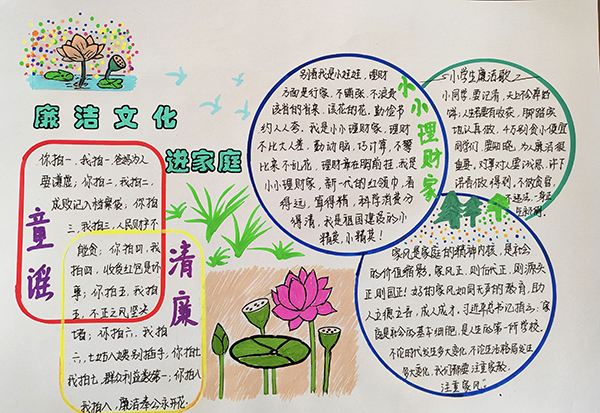 廉洁文化
进家庭
童谣
清廉
你拍一，我拍一，爸妈为人
要谦虚；你拍二，我拍二，
成败记入档案袋，你拍
三，我拍三，人民财产不
能贪；你拍四，我
拍四，收受红包是坏
事；你拍五，我拍
五，不正之风坚决
堵；你拍六，我拍
六，七大姑八大姨别插手，你拍七
我拍七，群众利益数第一；你拍八
我拍八，廉洁奉公永开花。
小小理财家
别看我是小娃娃，理财
方面是行家，不铺张，不浪费
该省的省来，该花的花，勤俭节
约人人夸，我是小小理财家，理财
不比大人差，勤动脑，巧计算，不攀
比来不乱花，理财章在胸前挂，我是
小小理财家，新一代的红领巾，看
得远，算得精，科序消费分
得清，我是祖国建设的小
精英，小精英！
小学生廉洁歌
小同学，要记清，天上不会掉馅
饼；人生若要有收获，脚踏实
地认真做，千万别贪小便宜
同学们，要知晓，为人廉洁很
重要，对事对人要诚恳，许下
诺言做得到，不做贪官，
家风是家庭的精神内核，是社会
的价值缩影，家风正，则后代正，则源头
正则国正！好的家风如同无声的教育，助
人立德立言，成人成才，习近平总书记指示：家
庭是社会的基本细胞，是人生的第一所学校，
不论时代发生多大变化，不论生活格局发生
多大变化，我们都要注重家教，
注重家风。